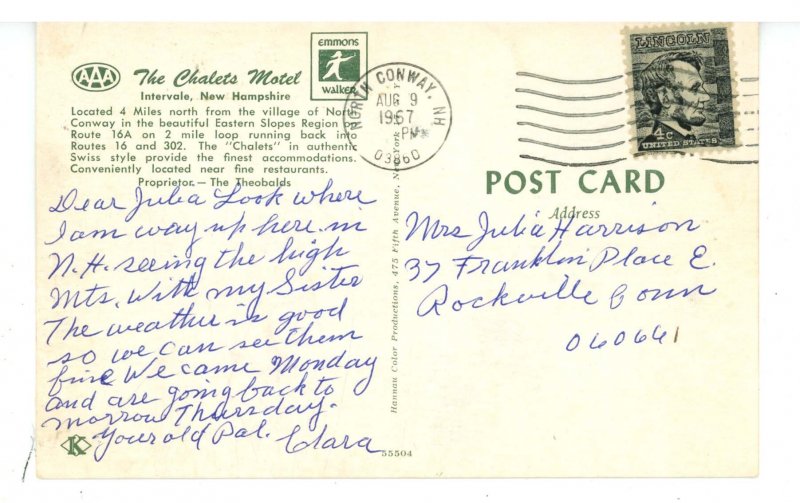 AAA
The Chalets Motel
Intervale, New Hampshire
emmons
walker
Located 4 Miles north from the village of North
Conway in the beautiful Eastern Slopes Region
Route 16A on 2 mile loop running back into
Routes 16 and 302. The "Chalets" in authentic
Swiss style provide the finest accommodations.
Conveniently located near fine restaurants.
Proprietor — The Theobalds
Dear Julia Look where
I am way up here in
N.H. seeing the high
Mts. With my Sister
The weather is good
so we can see them
fine We came Monday
and are going back to
morrow Thursday.
Your old Pal. Clara
K
55504
Hannau Color Productions, 475 Fifth Avenue, New York
NORTH CONWAY, NH
AUG 9
1967
PM
03860
LINCOLN
4c
UNITED STATES
POST CARD
Address
Mrs Julia Harrison
37 Franklin Place E.
Rockville Conn
060661